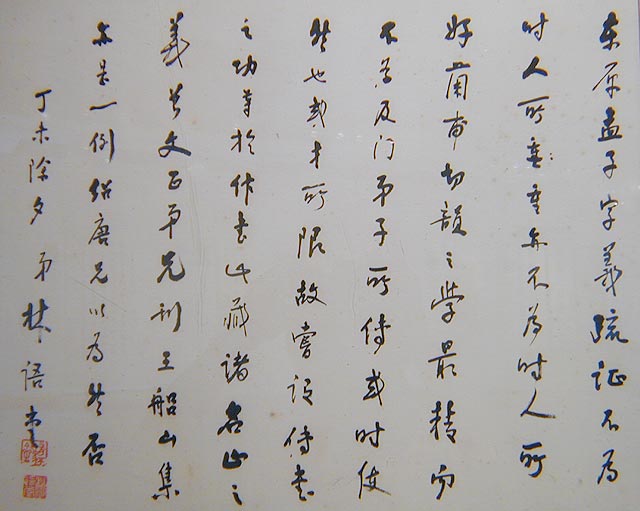 东原孟子字义疏证不为
时人所重重亦不为时人所
好兰甫切韵之学最精而
不为及门弟子所传或时使
然也或才所限故尝谓传书
之功等于作书此藏诸名山之
义曾文正弟兄刊王船山集
亦是一例绍唐兄以为然否
丁未除夕 弟林语堂